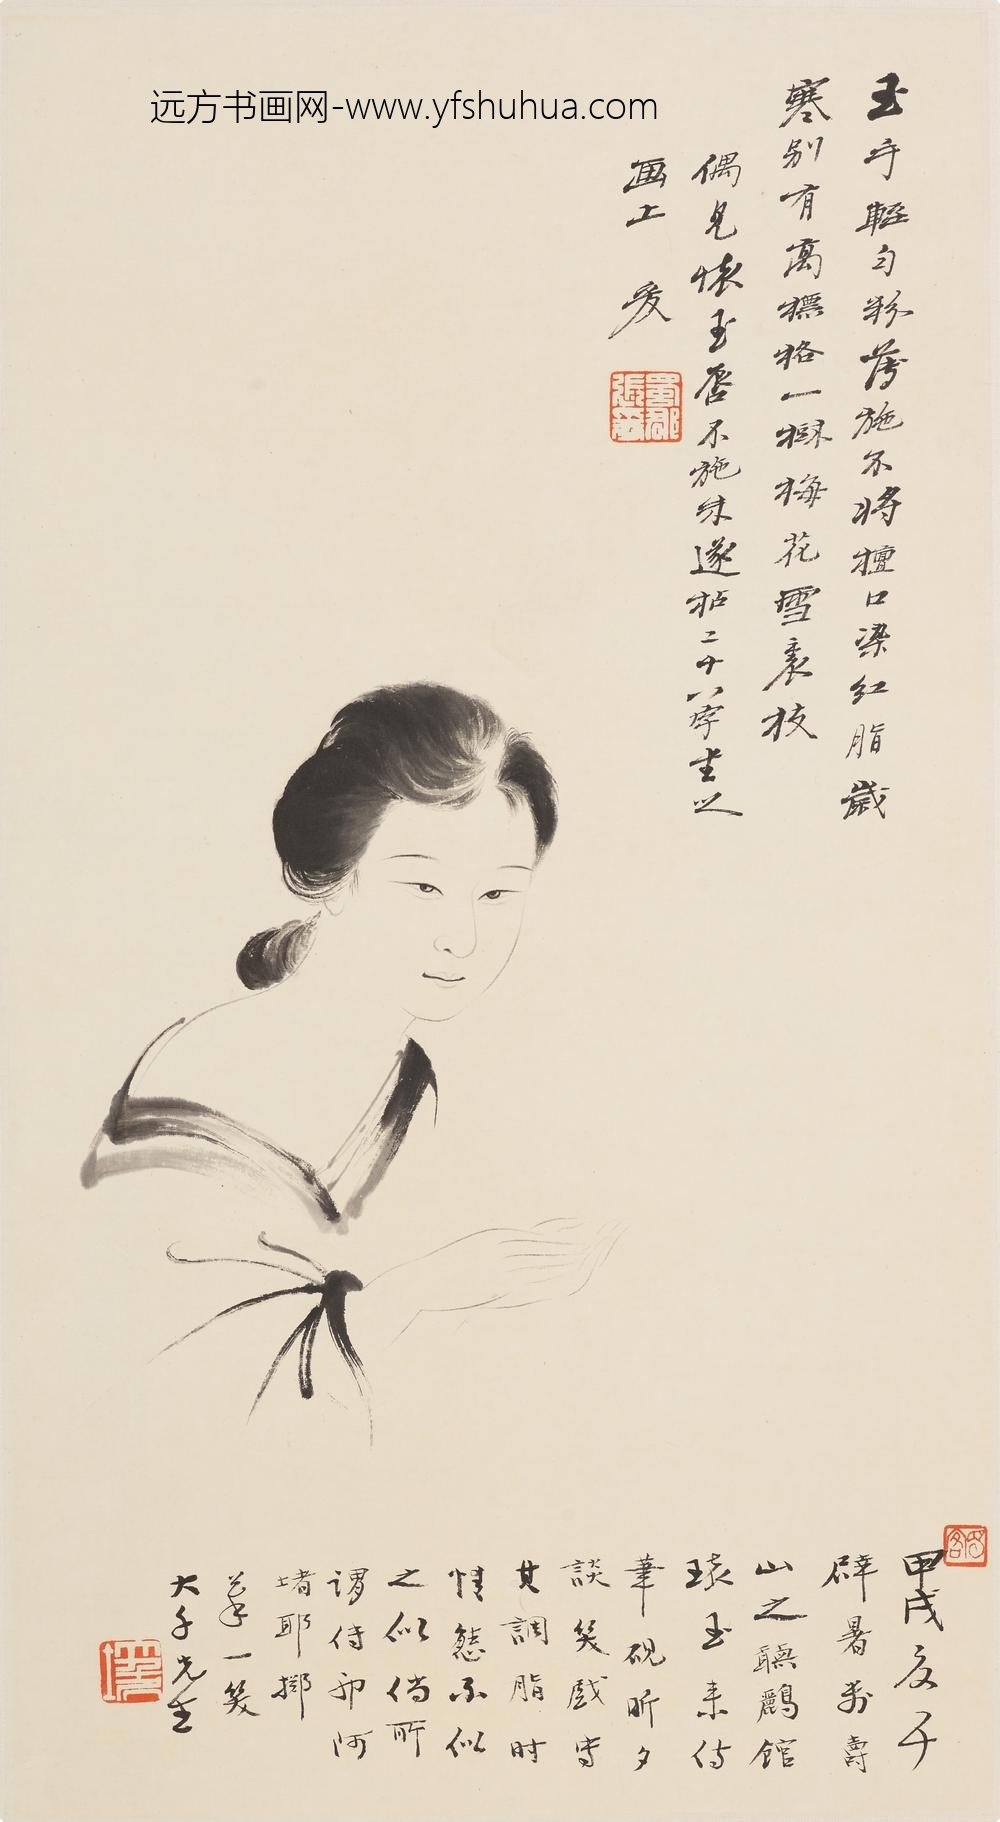 远方书画网-www.yfshuhua.com
玉手輕勻粉薄施不將檀口染紅脂歲
寒别有高標格一樹梅花雪裹枝
偶見懷玉唇不施朱遂拈二十八字書之
画上 爰
蜀郡張爰
甲戌夏予
辟暑萬壽
山之聽鸝館
瓌玉来侍
筆硯昕夕
談笑戲寫
其調脂时
情態不似
之似倘所
謂侍卯阿
堵耶擲
筆一笑
大千先生